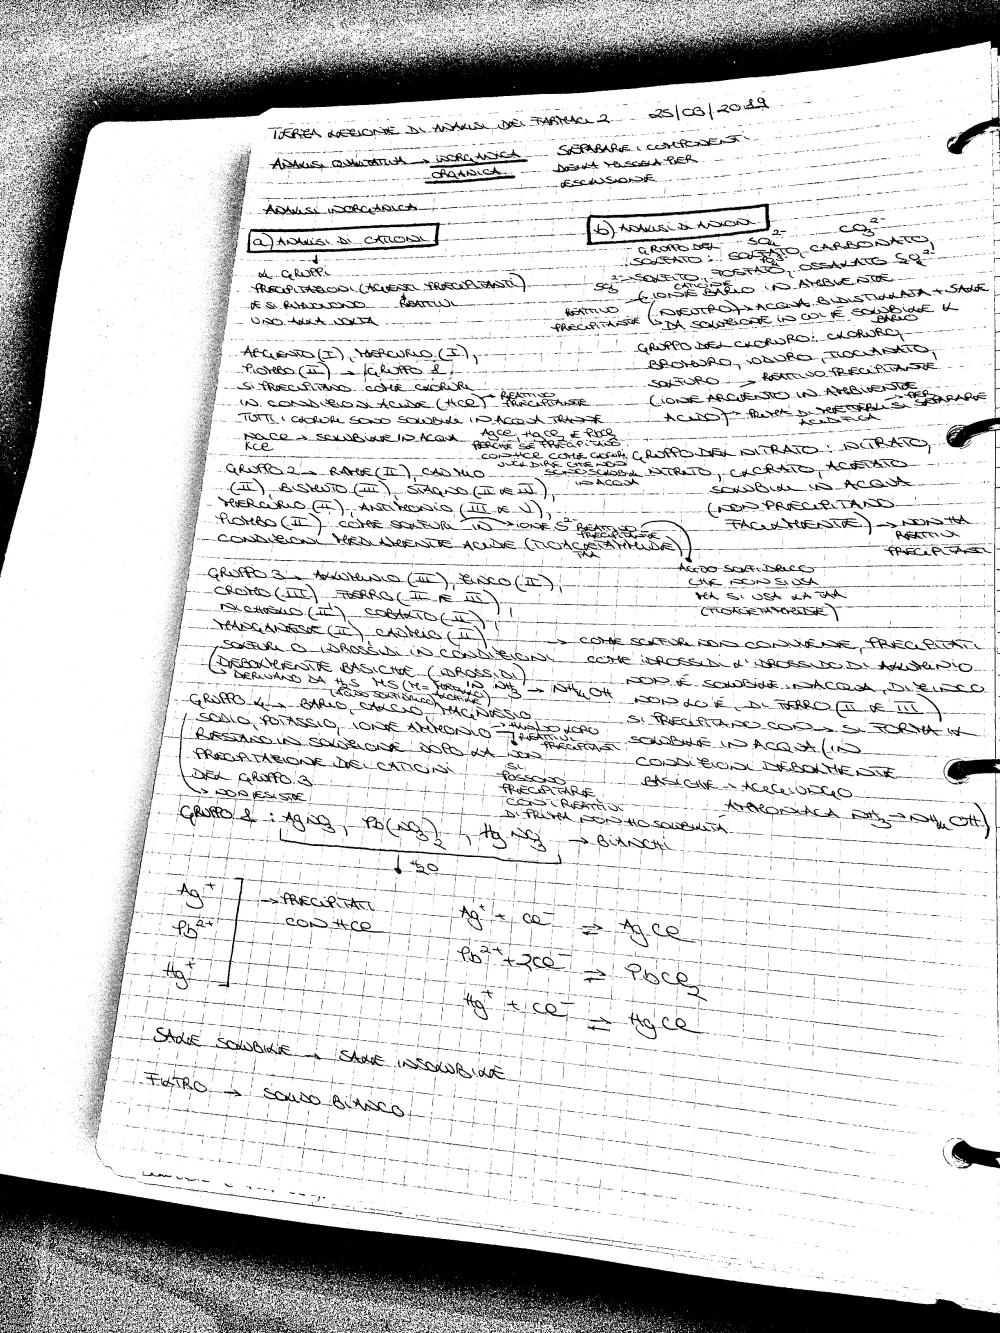 TERZA LEZIONE DI ANALISI DEI FARMACI 2 25/03/2019
ANALISI QUALITATIVA → INORGANICA
ORGANICA
SEPARARE I COMPONENTI
DELLA MISCELA PER
ESCLUSIONE
ANALISI INORGANICA
a) ANALISI DI CATIONI
4 GRUPPI
PRECIPITAZIONI (AGENTI PRECIPITANTI)
E SI RIMUOVONO REATTIVI
UNO ALLA VOLTA
ARGENTO (I), MERCURIO (I),
PIOMBO (II) → GRUPPO 1
SI PRECIPITANO COME CLORURI
IN CONDIZIONI ACIDE (HCl) → REATTIVO
PRECIPITANTE
TUTTI I CLORURI SONO SOLUBILI IN ACQUA TRANNE
AgCl, HgCl E PbCl2
NaCl → SOLUBILE IN ACQUA
KCl
PERCHÉ SE PRECIPITANO
CON HCl COME CLORURI
VUOL DIRE CHE NON
SONO SOLUBILI
IN ACQUA
GRUPPO 2 → RAME (II), CADMIO
(II), BISMUTO (III), STAGNO (II E IV),
MERCURIO (II), ANTIMONIO (III E V),
PIOMBO (II) COME SOLFURI IN → IONE S2- REATTIVO
PRECIPITANTE
CONDIZIONI MEDIAMENTE ACIDE (TIOACETAMMIDE)
TAA
ACIDO SOLFIDRICO
CHE NON SI USA
MA SI USA LA TAA
(TIOACETAMMIDE)
GRUPPO 3 → ALLUMINIO (III), ZINCO (II),
CROMO (III), FERRO (II E III),
NICHELIO (II), COBALTO (II),
MANGANESE (II), CADMIO (II)
SOLFURI O IDROSSIDI IN CONDIZIONI
DEBOLMENTE BASICHE (IDROSSIDI)
DERIVANO DA H2S MS IN NH3 → NH4OH
(ACIDO SOLFIDRICO)
GRUPPO 4 → BARIO, CALCIO, MAGNESIO
SODIO, POTASSIO, IONE AMMONIO → HANNO LORO
REATTIVI
PRECIPITANTI
RESTANO IN SOLUZIONE DOPO LA
PRECIPITAZIONE DEI CATIONI
DEL GRUPPO 3
→ NON ESISTE
NON
SI
POSSONO
PRECIPITARE
CON I REATTIVI
DI PRIMA NON HO SOLUBILITÀ
b) ANALISI DI ANIONI
GRUPPO DEL SO4 2- CO3 2-
SOLFATO: SOLFATO, CARBONATO,
SO3 2- → SOLFITO, FOSFATO, OSSALATO
CATIONE
REATTIVO
PRECIPITANTE
(IONE BARIO IN AMBIENTE
NEUTRO) → ACQUA BIDISTILLATA + SALE
→ DA SOLUZIONE IN CUI È SOLUBILE IL
BARIO
GRUPPO DEL CLORURO: CLORURO,
BROMURO, IODURO, TIOCIANATO,
SOLFURO → REATTIVO PRECIPITANTE
(IONE ARGENTO IN AMBIENTE
ACIDO) → PRIMA DI METTERLA SI SEPARARE
→ PER
ACIDIFICA
GRUPPO DEL NITRATO: NITRATO,
NITRITO, CLORATO, ACETATO
SOLUBILI IN ACQUA
(NON PRECIPITANO
FACILMENTE) → NON HA
REATTIVI
PRECIPITANTI
→ COME SOLFURI NON CONVIENE, PRECIPITATI
COME IDROSSIDI L'IDROSSIDO DI ALLUMINIO
NON È SOLUBILE IN ACQUA, DI ZINCO
NON LO È, DI FERRO (II E III)
SI PRECIPITANO COSÌ → SI FORMA IL
SOLUBILE IN ACQUA (IN
CONDIZIONI DEBOLMENTE
BASICHE → AGGIUNGO
AMMONIACA NH3 → NH4OH)
GRUPPO 1 : AgNO3, Pb(NO3)2, HgNO3 → BIANCHI
H2O
Ag+
Pb2+
Hg+
→ PRECIPITATI
CON HCl
Ag+ + Cl- ⇌ AgCl
Pb2+ + 2Cl- ⇌ PbCl2
Hg+ + Cl- ⇌ HgCl
SALE SOLUBILE → SALE INSOLUBILE
FILTRO → SOLIDO BIANCO